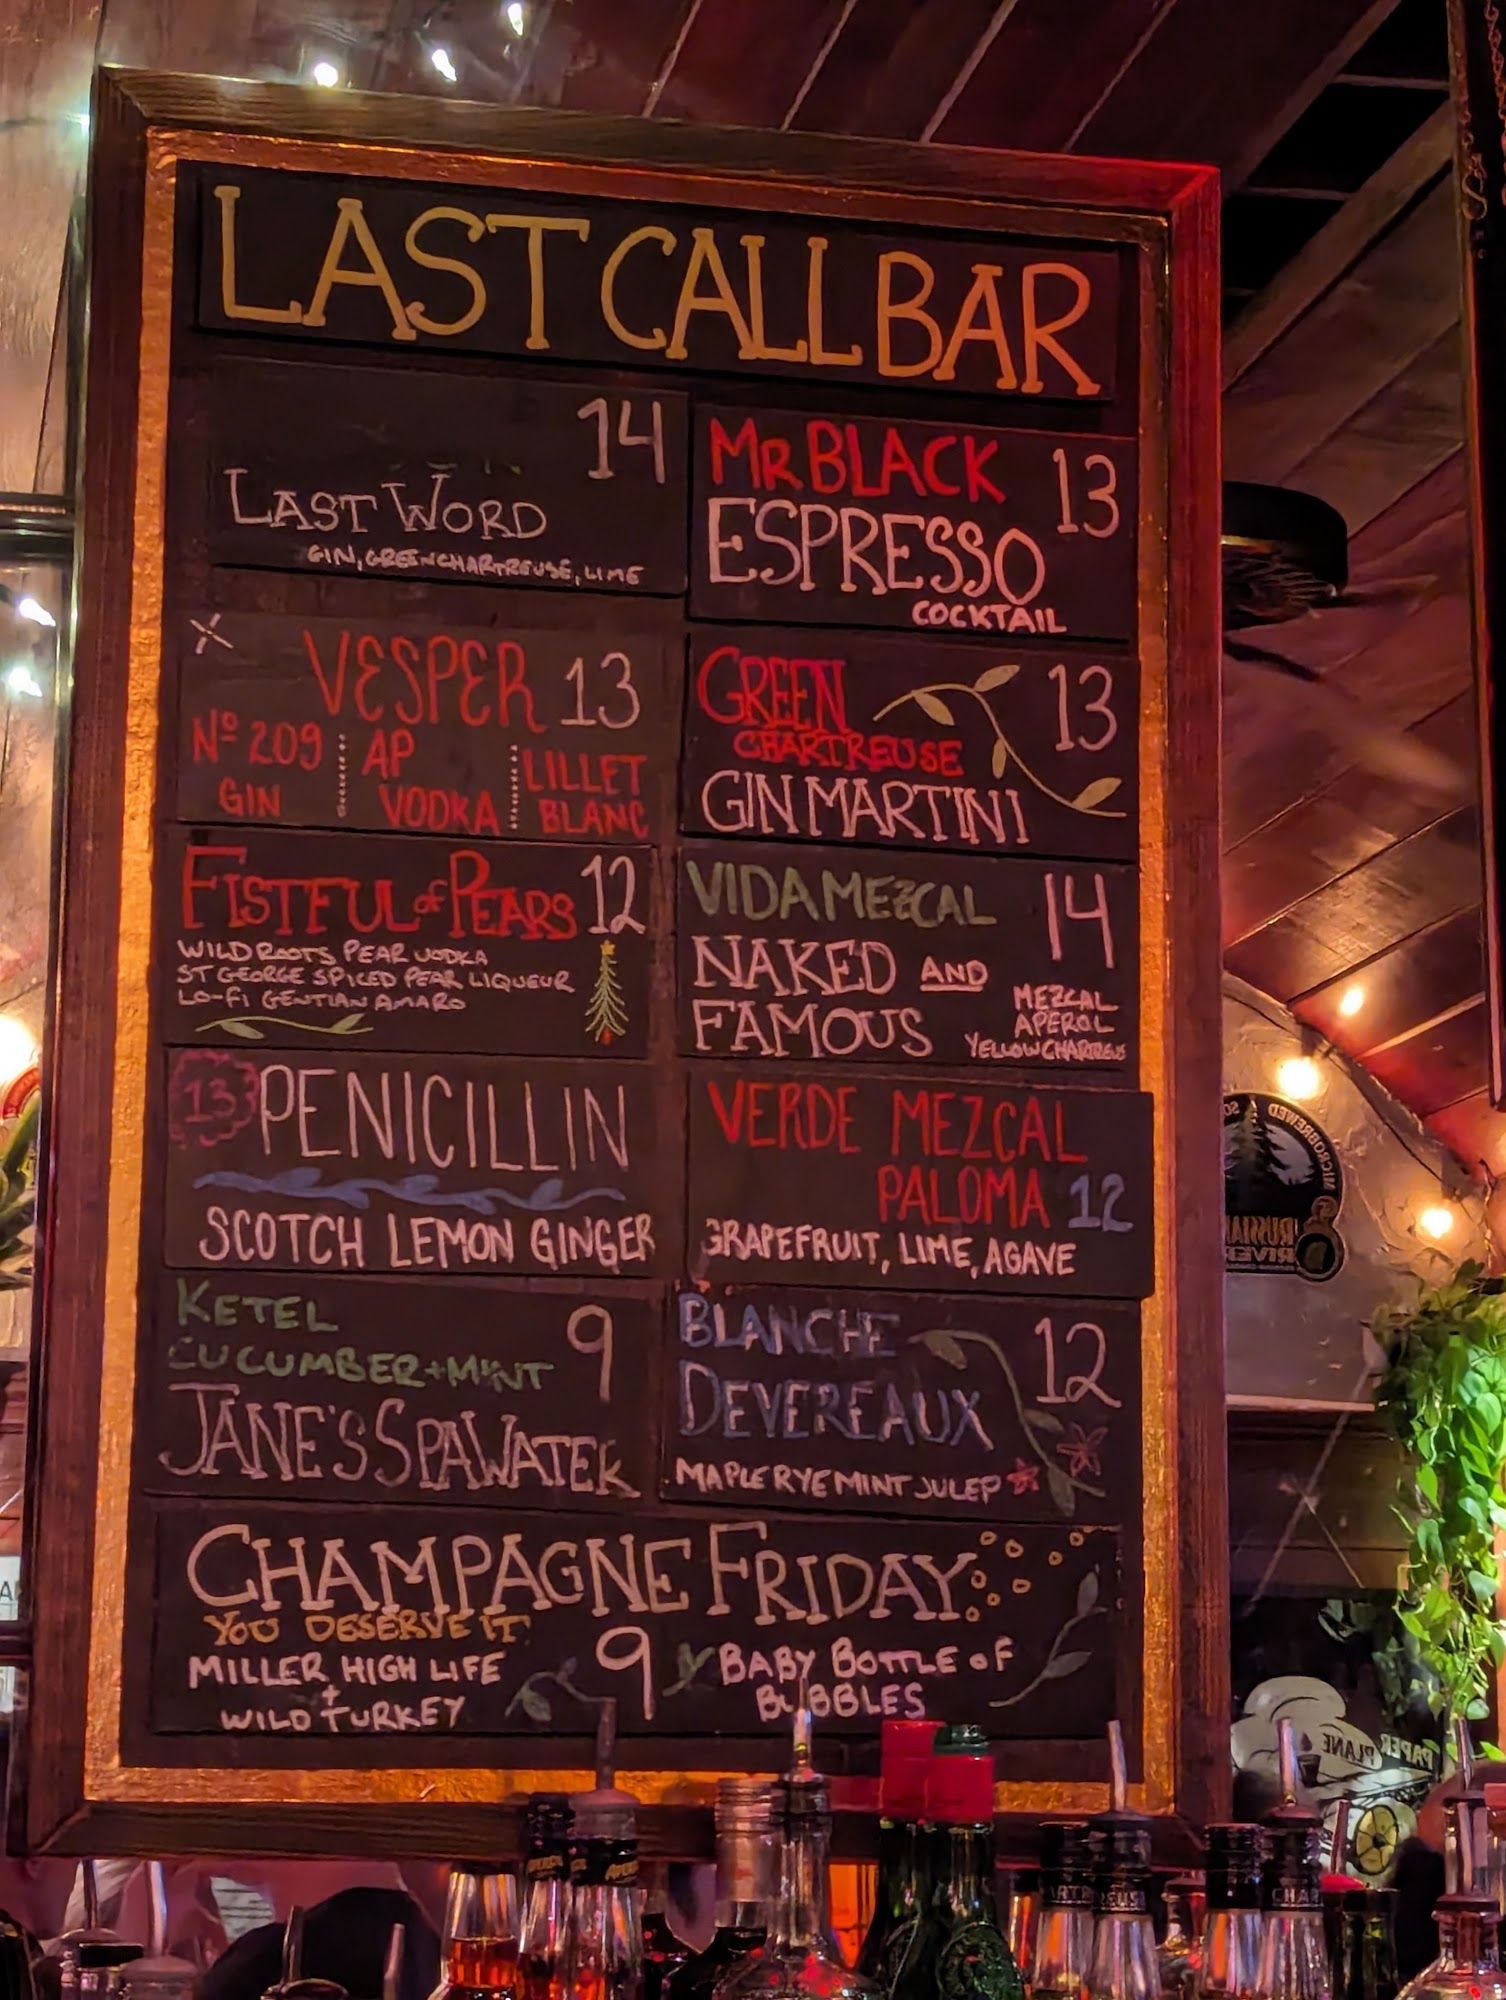 LAST CALL BAR
14
LAST WORD
GIN, GREEN CHARTREUSE, LIME
MR BLACK
13
ESPRESSO
COCKTAIL
VESPER 13
Nº 209
GIN
AP
VODKA
LILLET
BLANC
GREEN
13
CHARTREUSE
GIN MARTINI
FISTFUL of PEARS 12
WILD ROOTS PEAR VODKA
ST GEORGE SPICED PEAR LIQUEUR
LO-FI GENTIAN AMARO
VIDA MEZCAL
14
NAKED AND
FAMOUS
MEZCAL
APEROL
YELLOW CHARTREUS
13 PENICILLIN
SCOTCH LEMON GINGER
VERDE MEZCAL
PALOMA 12
GRAPEFRUIT, LIME, AGAVE
KETEL
9
CUCUMBER + MINT
JANE'S SPA WATER
BLANCHE
12
DEVEREAUX
MAPLE RYE MINT JULEP
CHAMPAGNE FRIDAY
YOU DESERVE IT
MILLER HIGH LIFE
+
WILD TURKEY
9
BABY BOTTLE OF
BUBBLES
MICROBREWED
RUSSIAN
RIVER
PAPER PLANE